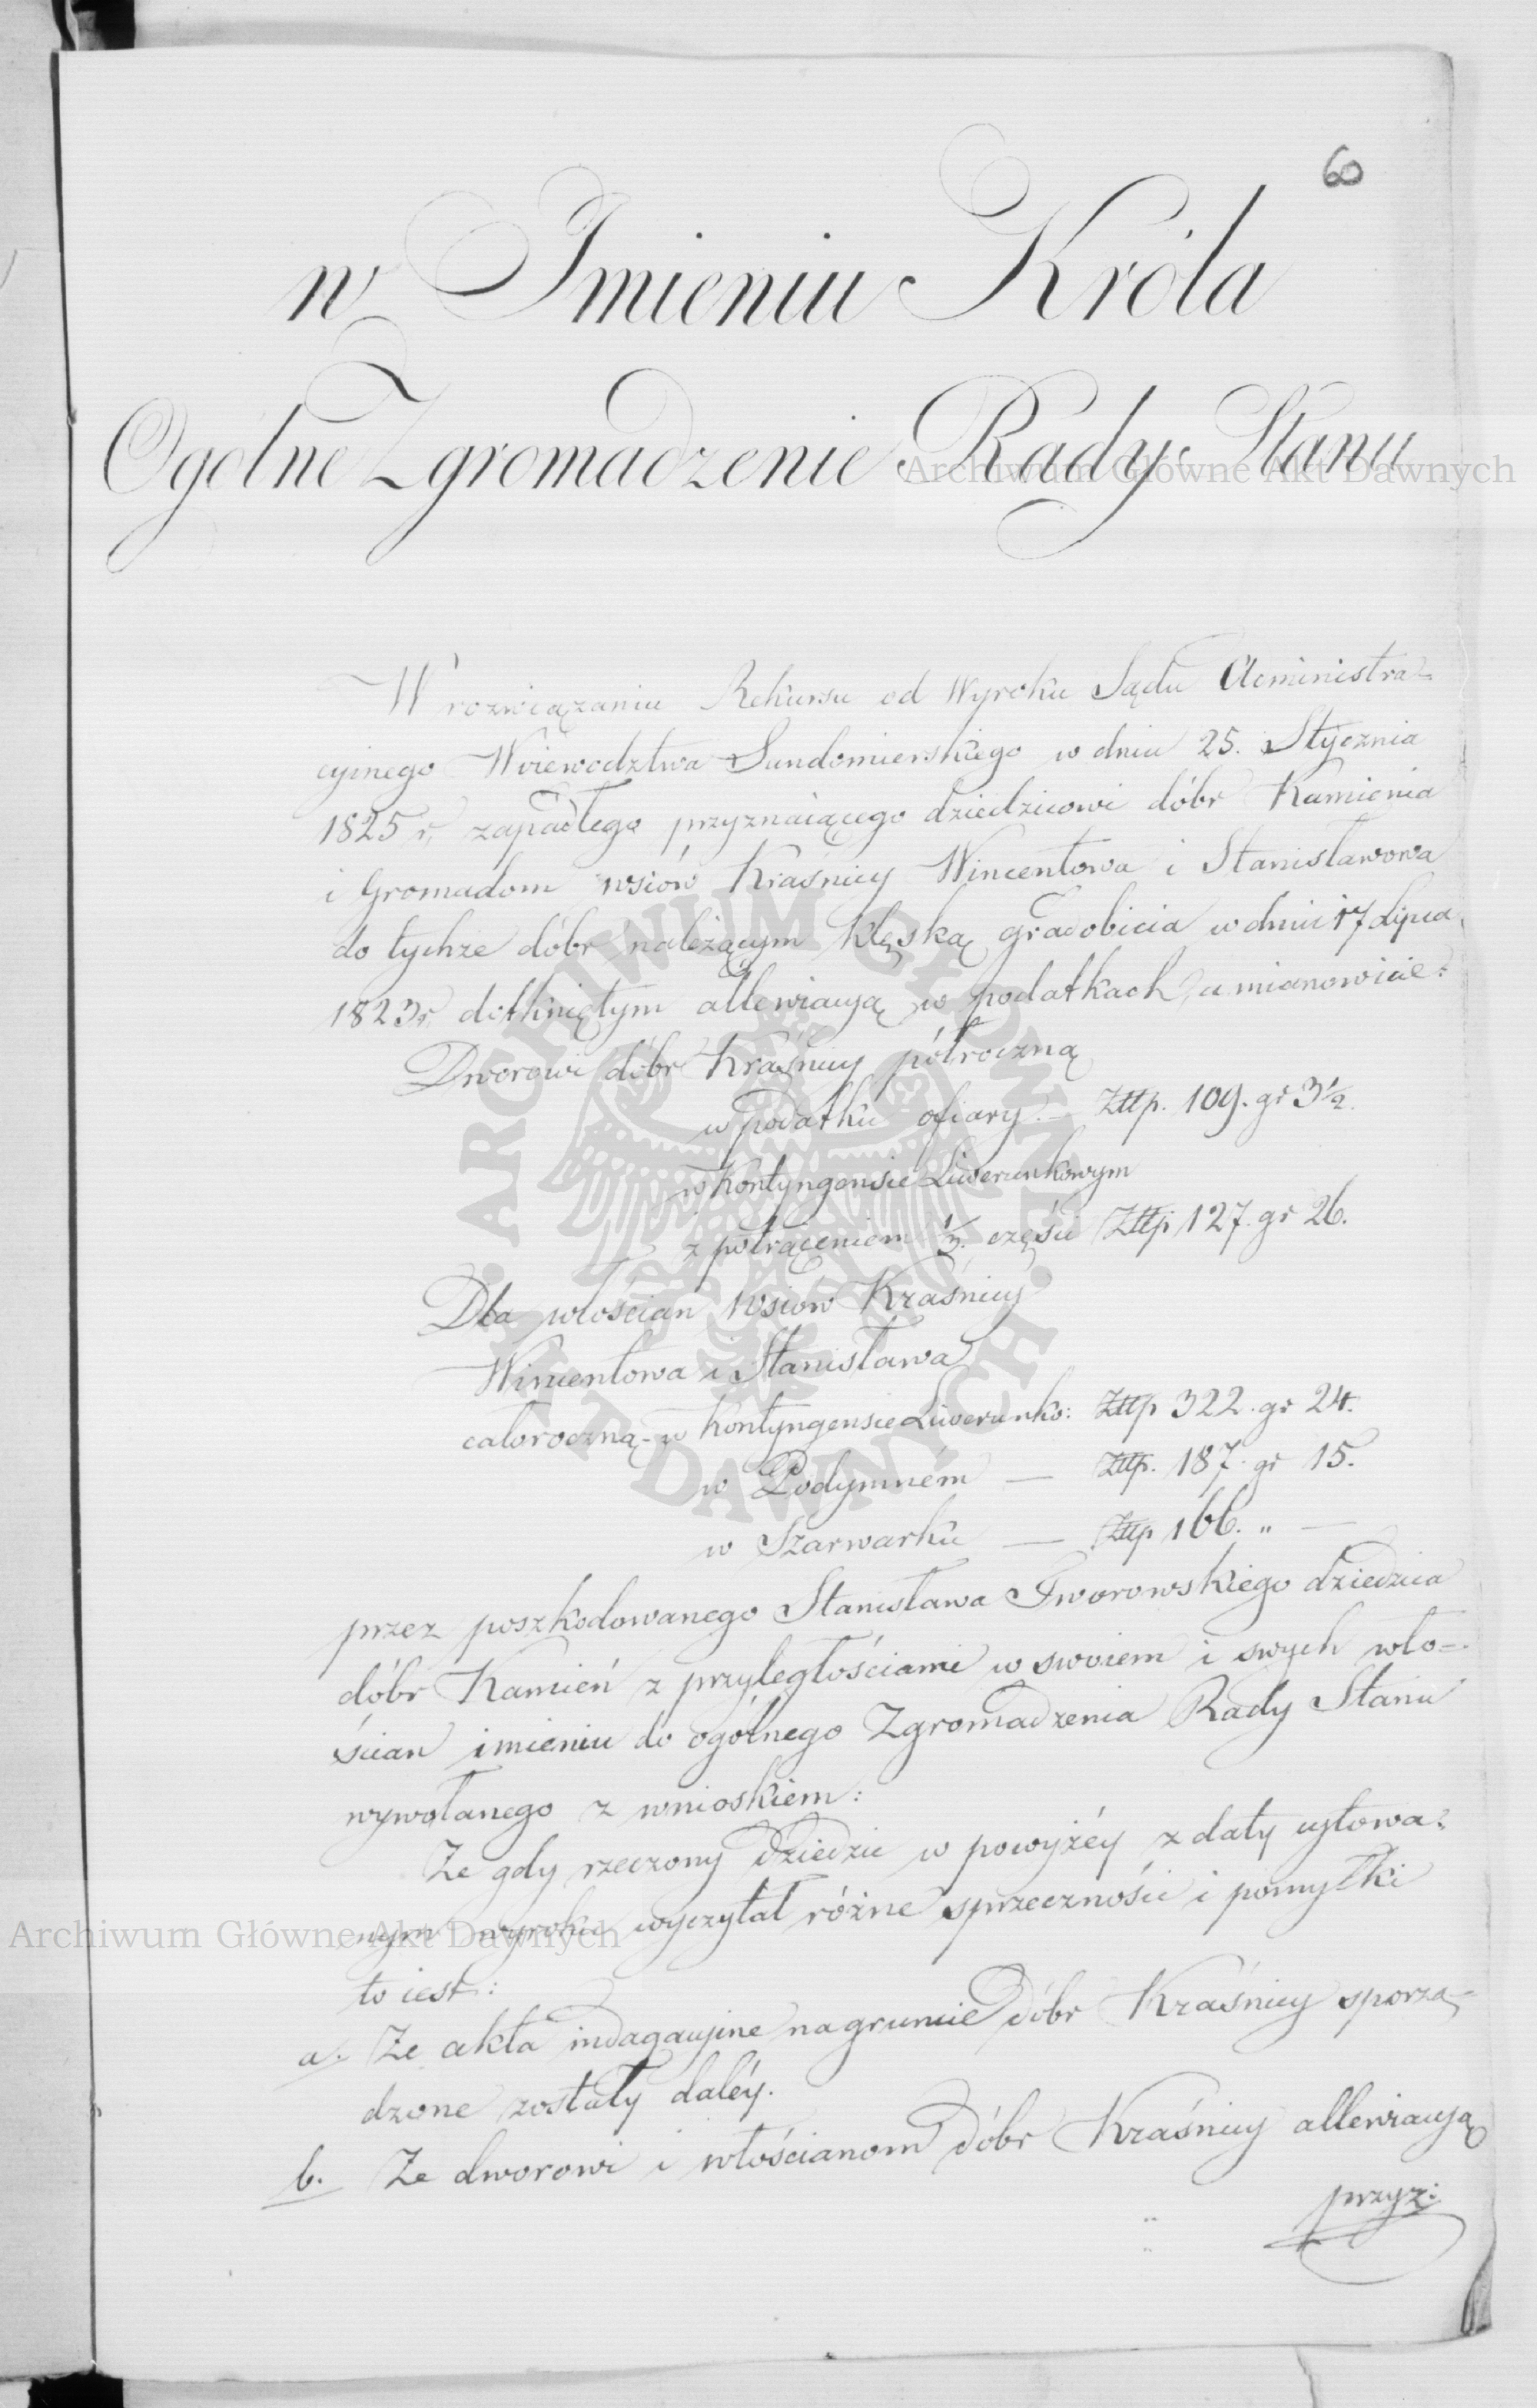 60
w Imieniu Króla
Ogólne Zgromadzenie Rady Stanu
W rozwiązaniu Rekursu od Wyroku Sądu Administra-
cyinego Woiewodztwa Sandomierskiego w dniu 25. Stycznia
1825 r. zapadłego przyznaiącego dziedzicowi dóbr Kamienia
i Gromadom wsiów Kraśnicy Wincentowa i Stanisławowa
do tychże dóbr należącym klęską gradobicia w dniu 17 Lipca
1823 r. dotkniętym allewiacyą w podatkach, a mianowicie:
Dworowi dóbr Kraśnicy półroczną
w podatku ofiary – Złtp. 109. gr 3 1/2.
w Kontyngensie Liwerunkowym
z potrąceniem 1/3. części Złtp 127. gr 26.
Dla włościan wsiów Kraśnicy
Wincentowa i Stanisława
całoroczną – w Kontyngensie Liwerunko: Złtp 322. gr 24.
w Podymném — Złtp. 187. gr 15.
w Szarwarku — Złtp 166. „ —
przez poszkodowanego Stanisława Tworowskiego dziedzica
dóbr Kamień z przyległościami w swoiem i swych wło=
ścian imieniu do ogólnego Zgromadzenia Rady Stanu
wywołanego z wnioskiem:
Że gdy rzeczony Dziedzic w powyżéy z daty cytowa=
nym wyroku wyczytał różne sprzeczności i pomyłki
to iest:
a. Że akta indagacyjne na gruncie dóbr Kraśnicy sporzą-
dzone zostały daléy.
b. Że dworowi i włościanom dóbr Kraśnicy allewiacyą
przyz:
Archiwum Główne Akt Dawnych
Archiwum Główne Akt Dawnych
ARCHIWUM GŁÓWNE AKT DAWNYCH